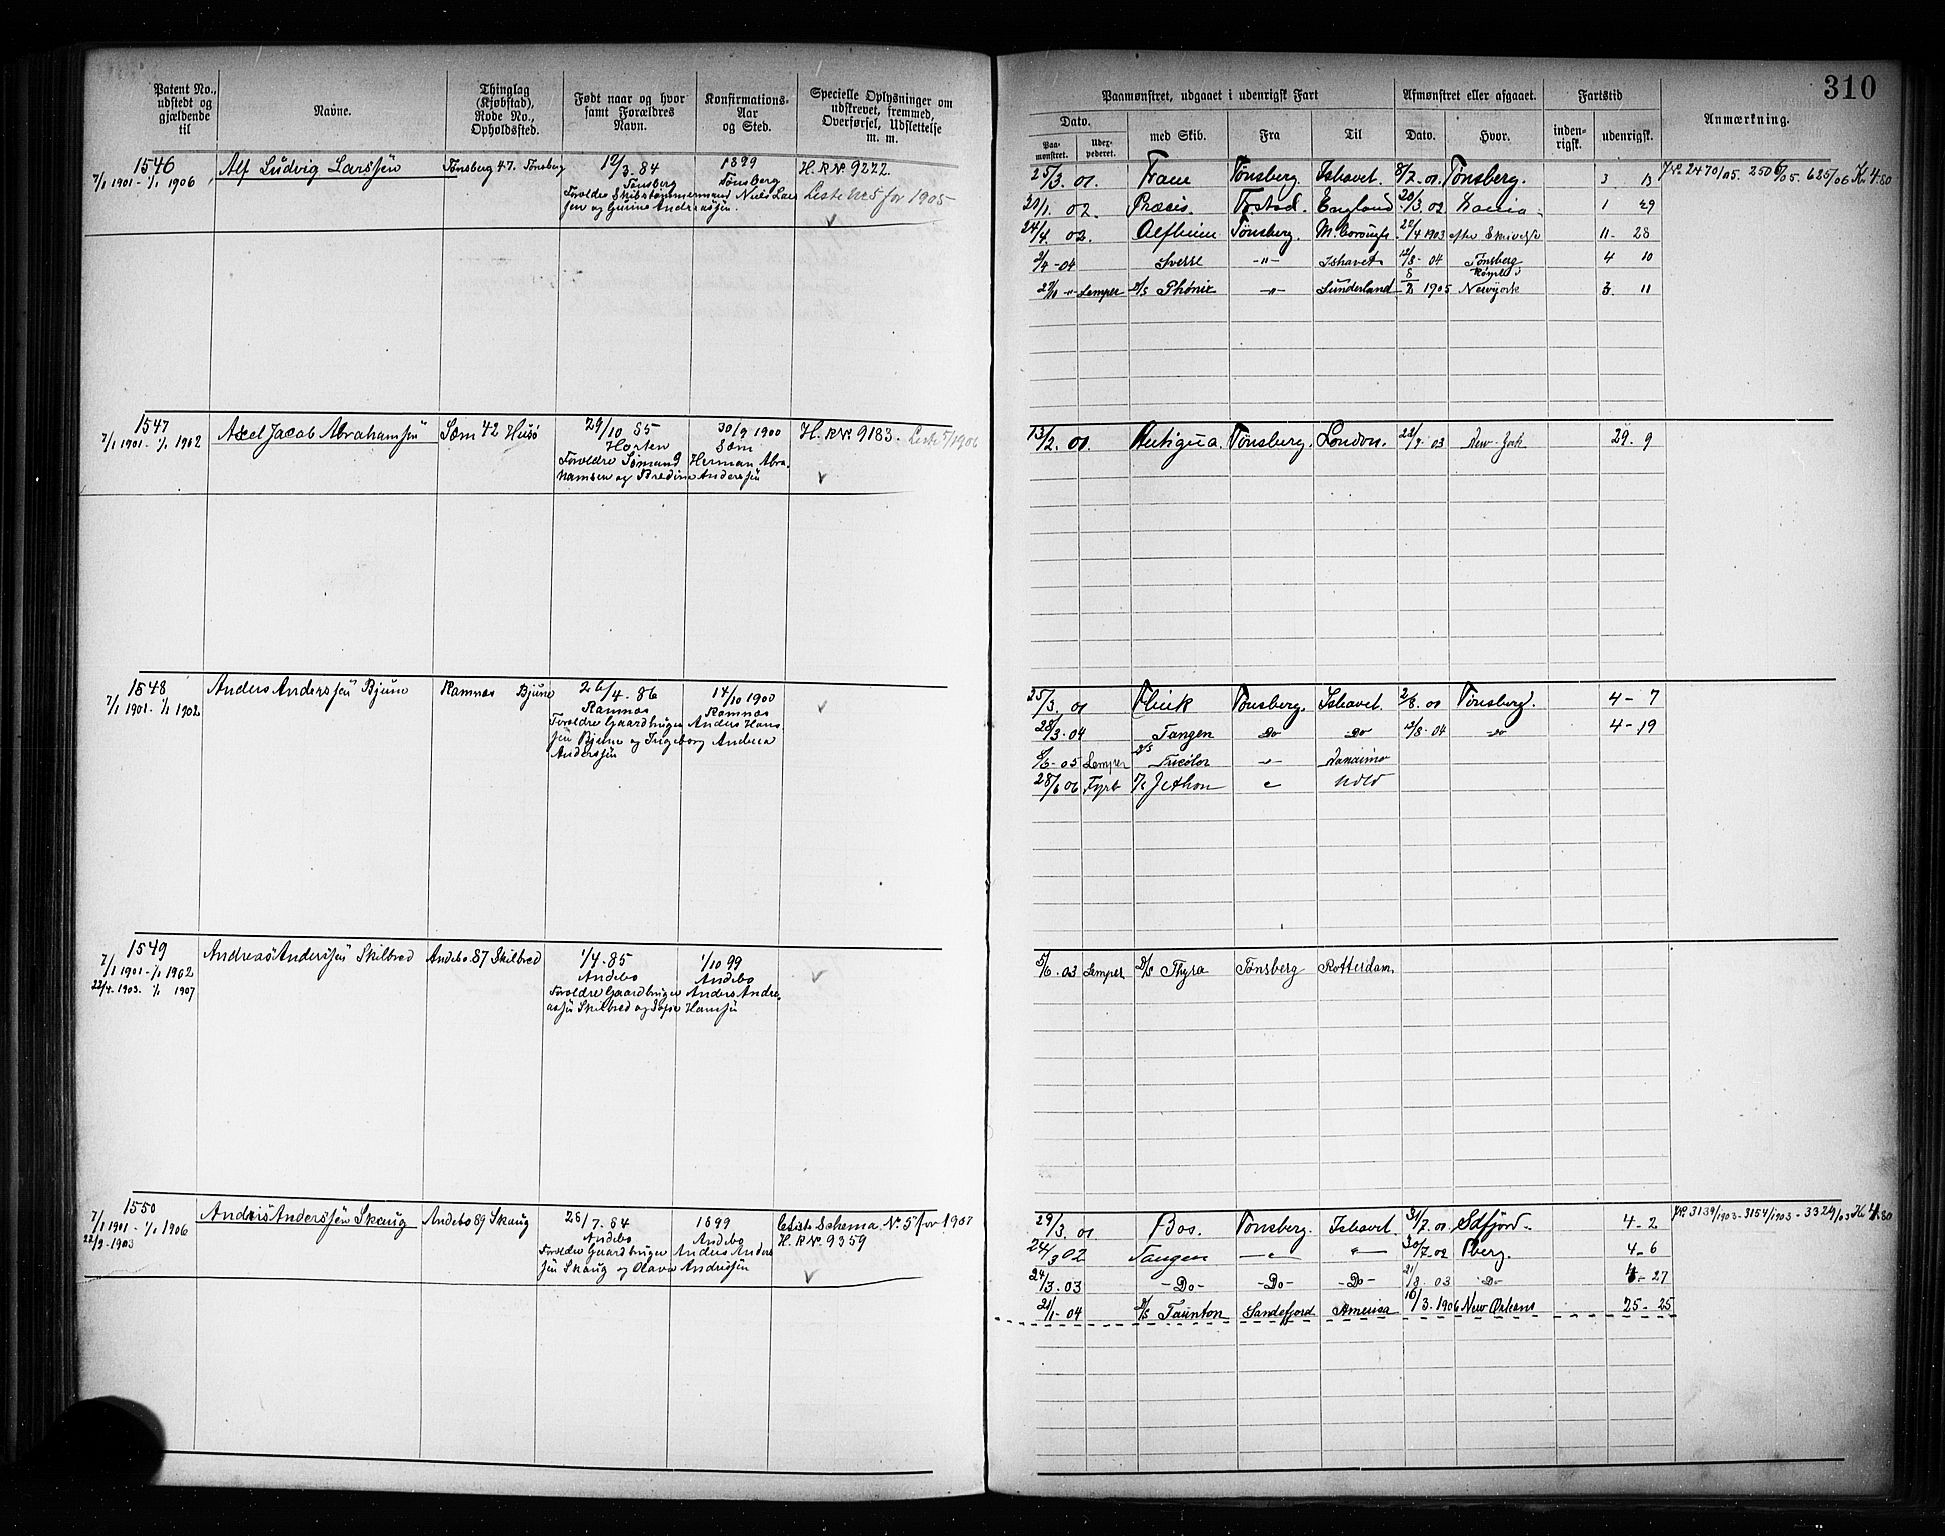 310
Patent No., udstedt og gjældende til
Navne.
Thinglag (Kjøbstad), Rode No., Opholdssted.
Født naar og hvor samt Forældres Navn.
Konfirmations-Aar og Sted.
Specielle Oplysninger om udskrevet, fremmed, Overførsel, Udslettelse m. m.
Paamønstret, udgaaet i udenrigsk Fart
Afmønstret eller afgaaet.
Fartstid
Anmærkning.
Dato.
Paa-mønstret.
med Skib.
Fra
Til
Dato.
Hvor.
inden-rigsk.
udenrigsk.
1546
7/1 1901 - 1/1 1906
Alf Ludvig Larssen
Tønsberg 47. Tønsberg
12/3. 84
Tønsberg
1899
Tønsberg
Foreldre Skibstømmermand Niels Lars
sen og Gunine Andreassen.
H.R.No. 9222.
Liste No 5 for 1905
25/3. 01. Fram Tønsberg. Ishavet. 8/7. 01. Tønsberg. 3 13
21/1. 02. Præcis. Frstad. England 20/3. 02 1 29
24/4. 02. Alfheim Tønsberg. 22/4 1903 11 - 28
2/4 - 04 Sverre -"- Ishavet 12/8 - 04 Tønsberg 4 10
Lemper D/S Phönix -"- Sunderland 1905 Newyork 3. 11
1547
7/1 1901 - 1/1 1902
Axel Jacob Abrahamsen
Sæm 42 Husø
29/10 85
Horten
30/9 1900
Sæm
Foreldre Sømand Herman Abra
hamsen og Bredine Anderssen
H.R.No. 9183. Liste 5/1906
13/2. 01. Antigua. Tønsberg. London. 22/7. 03 New-York 29. 9
1548
7/1 1901 - 1/1 1902
Anders Anderssen Bjune
Ramnes Bjune
26/4. 86
Ramnes
14/10 1900
Ramnes
Foreldre Gaardbruger Anders Hans
sen Bjune og Ingeborg Andrea
Anderssen
25/3. 01 Flink Tønsberg. Ishavet. 2/8. 01 Tønsberg. 4 - 7
28/3. 04 Tangen Do Do 12/8. 04 Do 4 - 19
6/6 - 05 Lemper D/S Tricolor
28/6 06 Fyrb
1549
7/1 1901 - 1/1 1902
22/4. 1903. 1/1 1907
Andreas Anderssen Skilbred
Andebo 87 Skilbred
1/4. 85
Andebo
1/10 99
Andebo
Foreldre Gaardbruger Anders Andre
assen Skilbred og Sofie Hanssen
5/6. 03 Lemper D/S Thyra Tønsberg Rotterdam.
1550
7/1 1901 - 1/1 1906
22/9 - 1903
Anders Anderssen Skaug
Andebo 89 Skaug
26/7. 84
Andebo
1899
Andebo
Foreldre Gaardbruger Anders Anders
sen Skaug og Olava Andrissen
Liste Schema No. 5 for 1907
H.R.No. 9359
29/3. 01 Bos. Tønsberg. Ishavet. 31/7. 01. Sdfjord. 4 - 2
24/3 02 Tangen 30/7. 02 Tberg. 4 - 6
24/3. 03 - Do - - Do - - Do - 21/8. 03 Do 4 - 27
21/1 - 04 D/S Taunton Sandefjord Amerika 16/3. 1906 New Orleans 25 - 25
3139/1903 - 3154/1903 - 3324/03 Kr 4.80